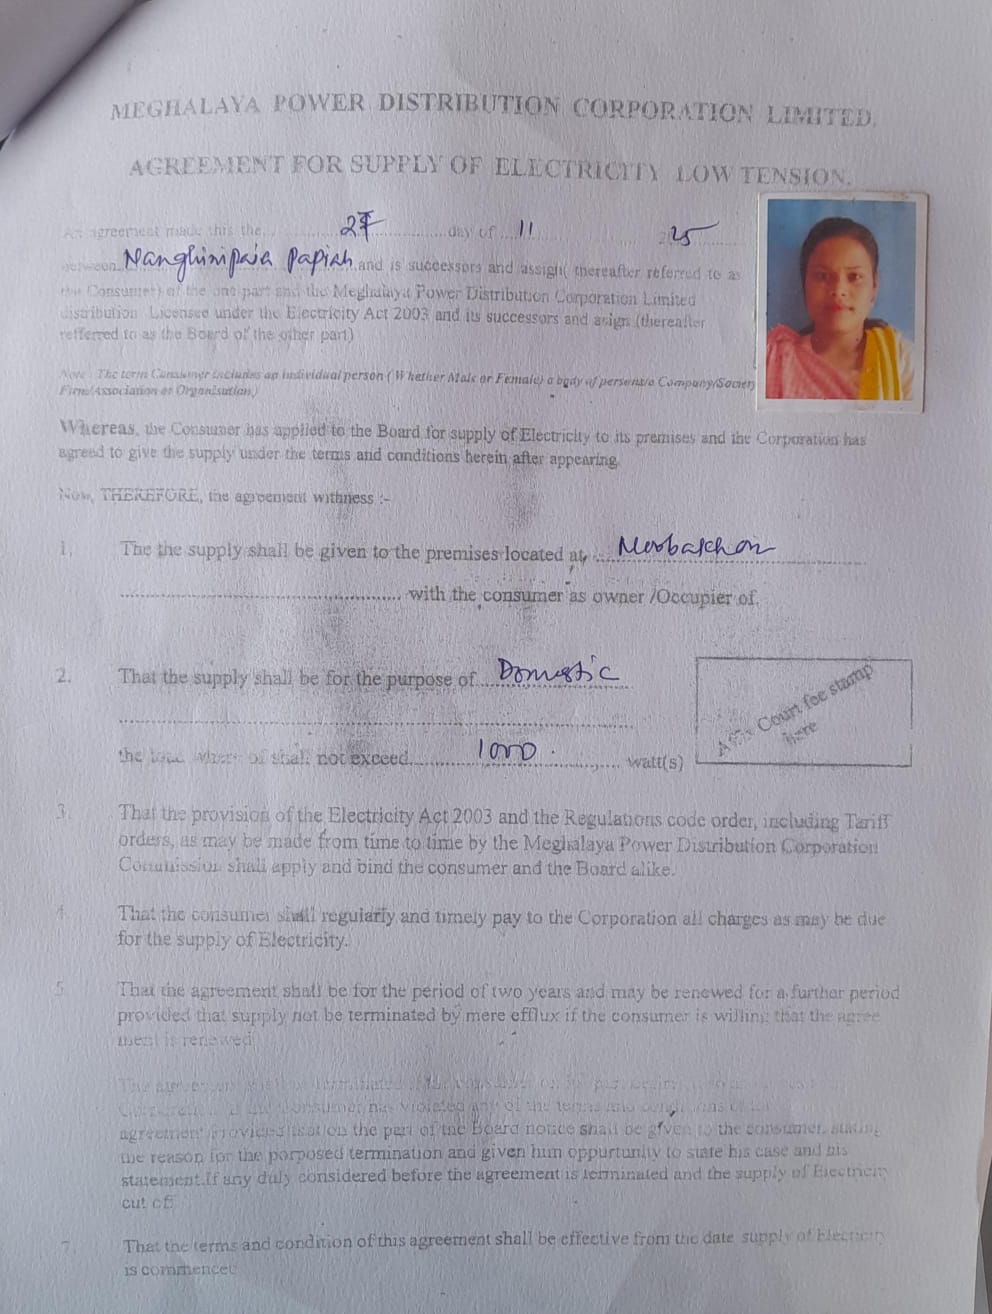 MEGHALAYA POWER DISTRIBUTION CORPORATION LIMITED.
AGREEMENT FOR SUPPLY OF ELECTRICITY LOW TENSION.
An agreement made this the 27 day of 11 25
between Nanghinipaia Papiah and is successors and assign( thereafter referred to as
the Consumer) of the one part and the Meghalaya Power Distribution Corporation Limited
distribution Licensee under the Electricity Act 2003 and its successors and asign (thereafter
refferred to as the Board of the other part)
Note : The term Consumer includes an individual person ( Whether Male or Female) a body of persons/a Company/Society
Firm/Association or Organisation.)
Whereas, the Consumer has applied to the Board for supply of Electricity to its premises and the Corporation has
agreed to give the supply under the terms and conditions herein after appearing.
Now, THEREFORE, the agreement withness :-
1. The the supply shall be given to the premises located at,
with the consumer as owner /Occupier of.
2. That the supply shall be for the purpose of Domestic
A Court fee stamp
here
the load where of shall not exceed 1000 watt(s)
3. That the provision of the Electricity Act 2003 and the Regulations code order, including Tariff
orders, as may be made from time to time by the Meghalaya Power Distribution Corporation
Commission shall apply and bind the consumer and the Board alike.
4. That the consumer shall regularly and timely pay to the Corporation all charges as may be due
for the supply of Electricity.
5. That the agreement shall be for the period of two years and may be renewed for a further period
provided that supply not be terminated by mere efflux if the consumer is willing that the agree
ment is renewed
Corporation if the Consumer has violated any of the terms and conditions of
agreement provided that on the part of the Board notice shall be given to the consumer stating
the reason for the porposed termination and given him oppurtunity to state his case and his
statement.If any duly considered before the agreement is terminated and the supply of Electricity
cut off
7. That the terms and condition of this agreement shall be effective from the date supply of Electricity
is commenced